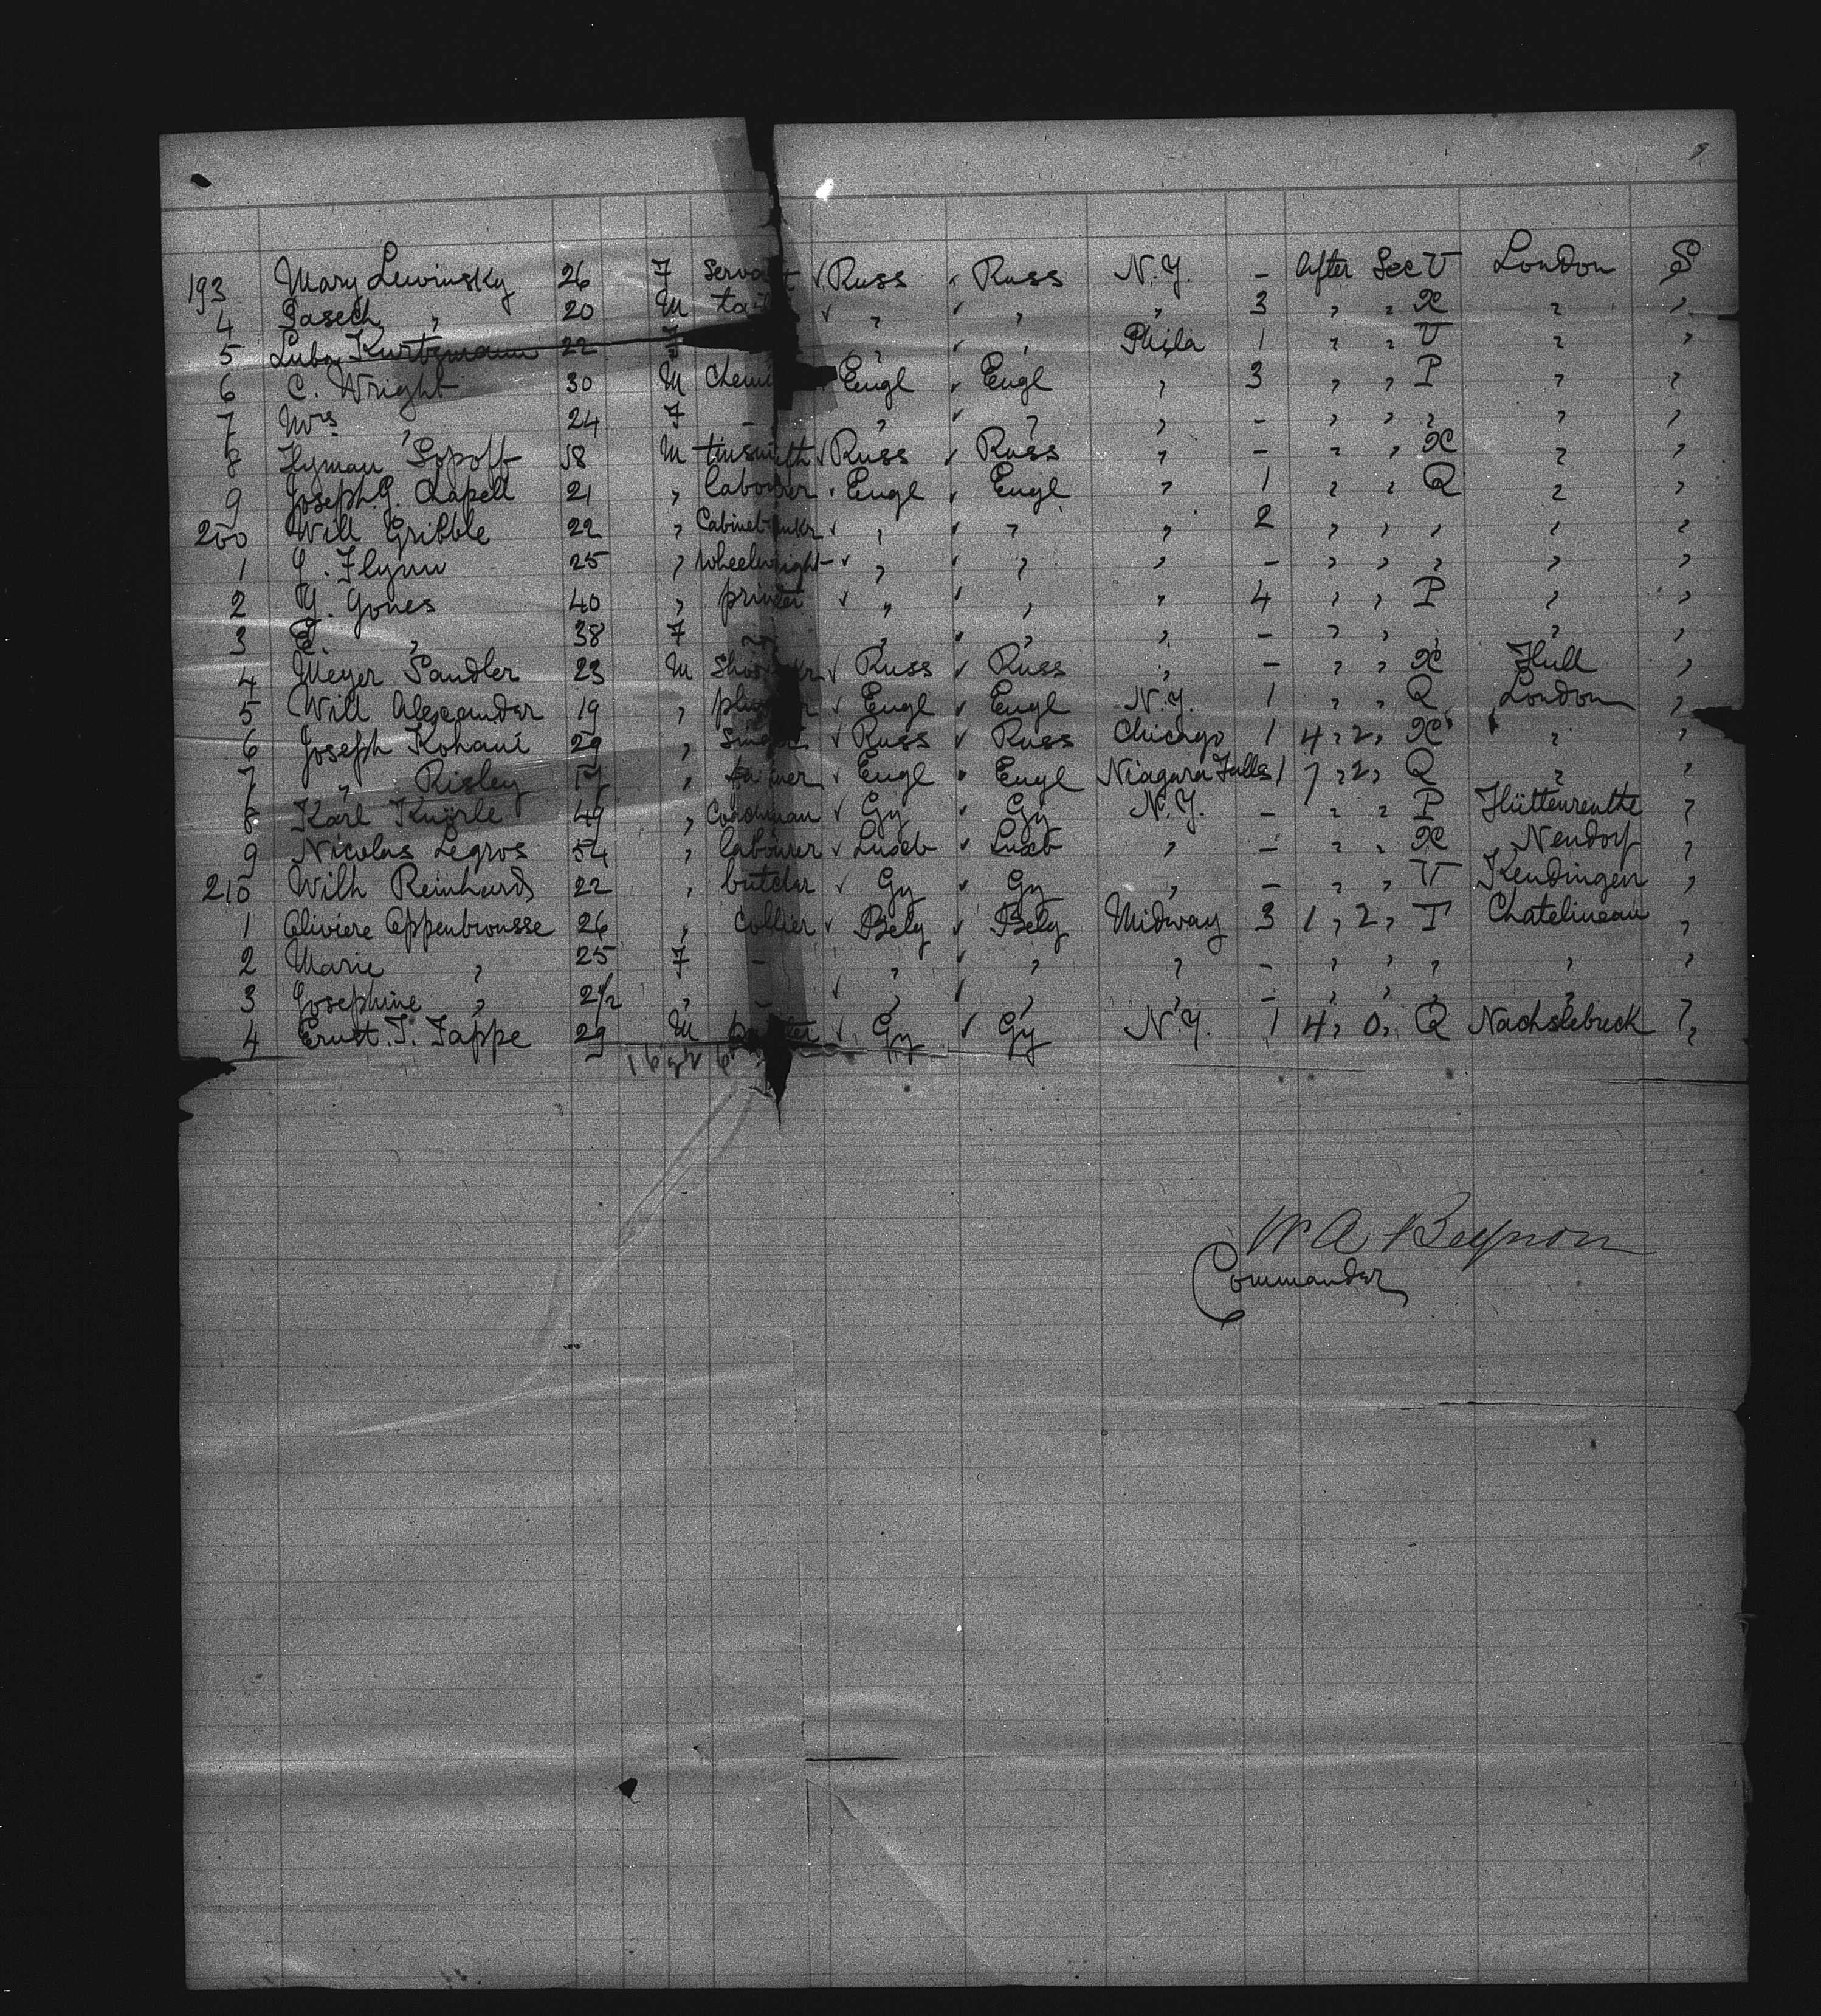 193 Mary Lewinsky 26 F Servant ✓ Russ ✓ Russ N.Y. - After Sec V London S
4 Pasech " 20 M ✓ " ✓ " " 3 " " X " "
5 Luba Kurtzmann 22 F " ✓ " Phila 1 " " V " "
6 C. Wright 30 M Engl ✓ Engl " 3 " " P " "
7 Mrs " 24 F - " ✓ " " - " " " " "
8 Hyman Sopoff 18 M tinsmith ✓ Russ ✓ Russ " - " " X " "
9 Joseph G. Chapell 21 " labourer ✓ Engl ✓ Engl " 1 " " Q " "
200 Will Gribble 22 " Cabinet mkr ✓ " ✓ " " 2 " " " " "
1 Flynn 25 " Wheelwright ✓ " ✓ " " - " " " " "
2 Jones 40 " printer ✓ " ✓ " " 4 " " P " "
3 E. " 38 F " ✓ " " - " " " " "
4 Meyer Sandler 23 M ✓ Russ ✓ Russ " - " " X Hull "
5 Will Alexander 19 " ✓ Engl ✓ Engl N.Y. 1 " " Q London "
6 Joseph Kohani 29 " ✓ Russ ✓ Russ Chicago 1 4 " 2 " X " "
7 " Risley " ✓ Engl ✓ Engl Niagara Falls 1 7 " 2 " Q " "
8 Karl Knörle 49 " Coachman ✓ Gy ✓ Gy N.Y. - " " P Hüttenreuthe "
9 Nicolas Legros 54 " labourer ✓ Luxb ✓ Luxb " - " " X Nendorf "
210 Wilh Reinhards 22 " butcher ✓ Gy ✓ Gy " - " " V Kendingen "
1 Oliviere Appenbrousse 26 " Collier ✓ Belg ✓ Belg Midway 3 1 " 2 " T Chatelineau "
2 Marie " 25 F - " ✓ " " - " " " " "
3 Josephine " 2 1/2 " - ✓ " ✓ " " - " " " " "
4 Ernst. T. Tappe 29 M ✓ Gy ✓ Gy N.Y. 1 4 " 0 " Q Nachslebreck "
W A Beynon
Commander